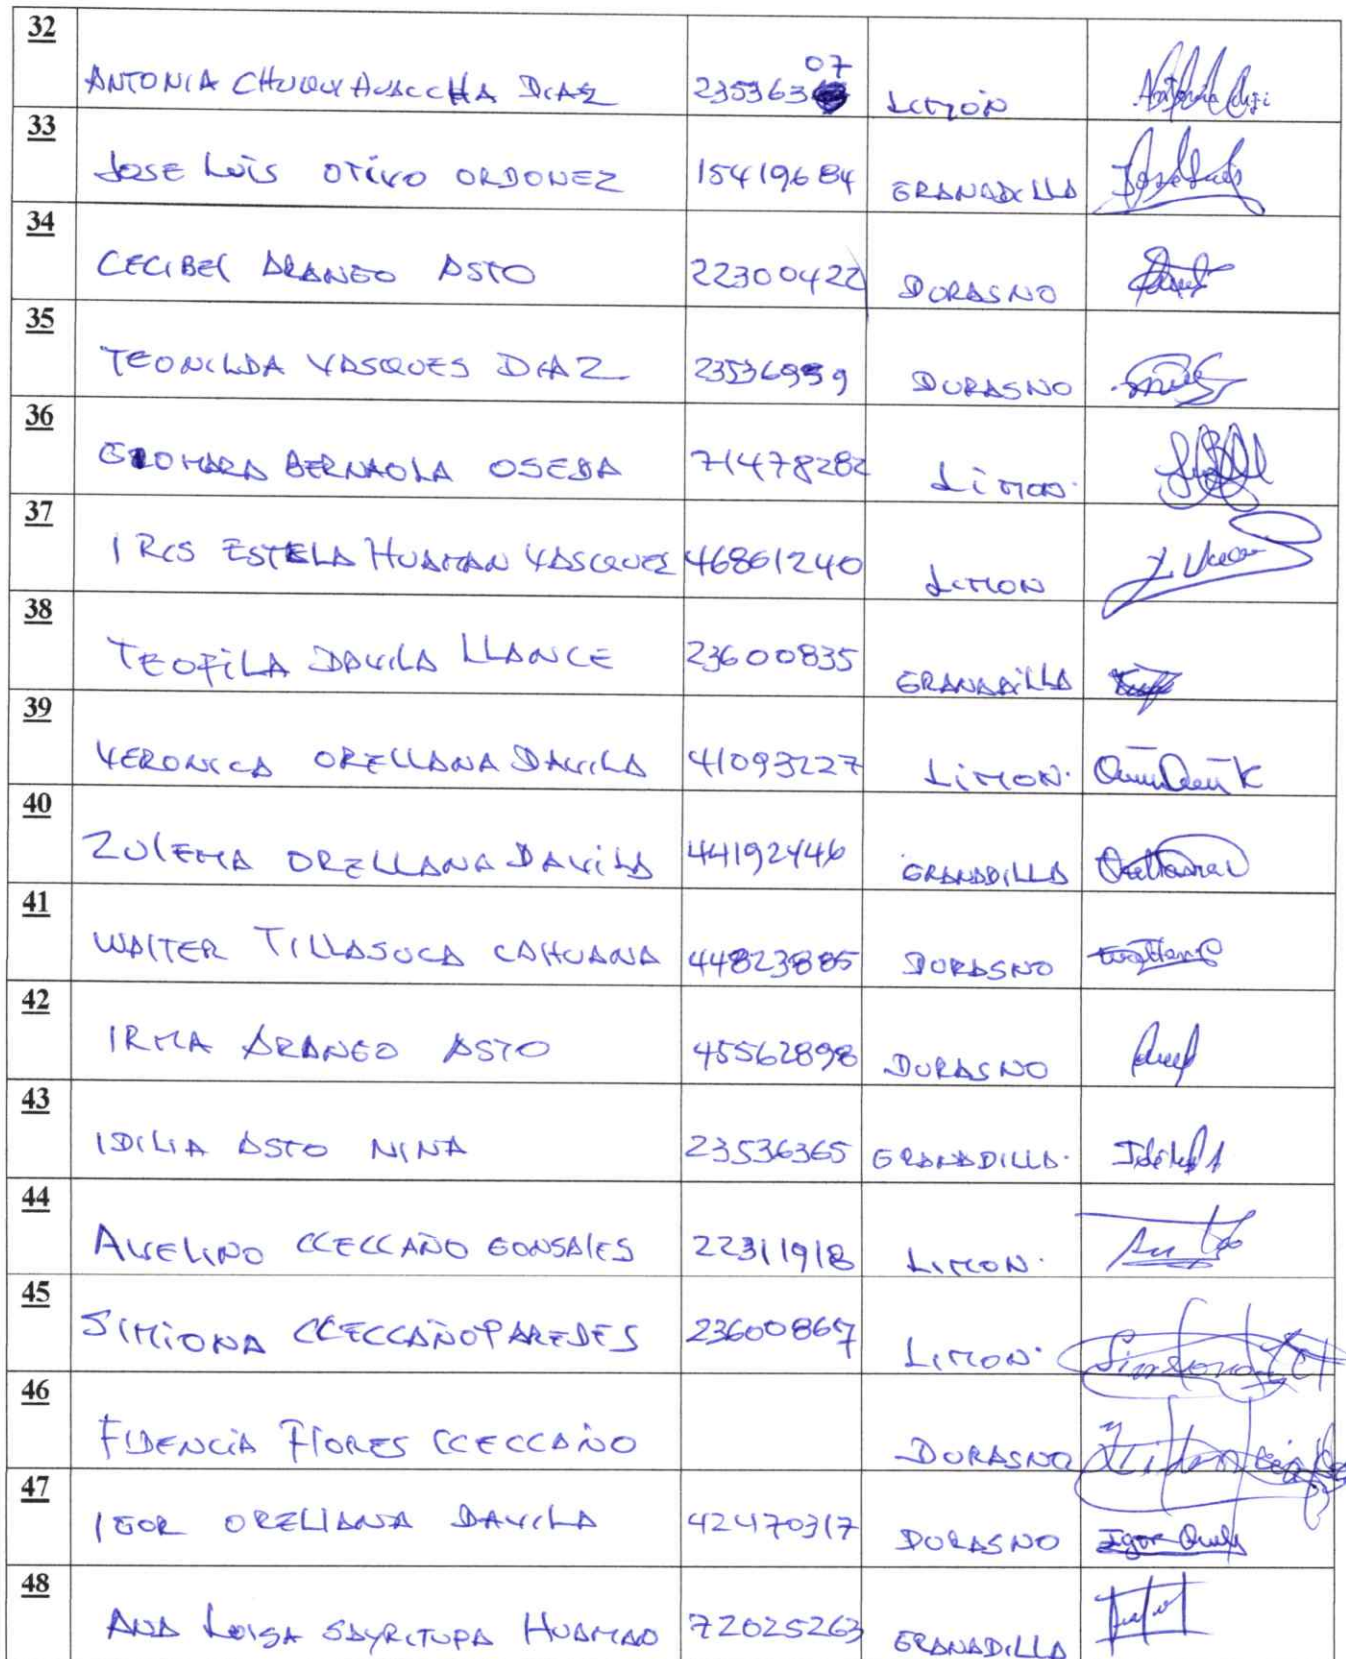 32 ANTONIA CHUQUIHUACCHA DIAZ 235363 07 LIMÓN
33 JOSE LUIS OTIVO ORDONEZ 15419684 GRANADILLA
34 CECIBEL ARANGO ASTO 22300422 DURASNO
35 TEONILDA VASQUES DIAZ 23536959 DURASNO
36 BERNAOLA OSEDA 71478282 LIMON.
37 IRIS ESTELA HUAMAN VASQUEZ 46861240 LIMON
38 TEOFILA DAVILA LLANCE 23600835 GRANADILLA
39 VERONICA ORELLANA DAVILA 41093227 LIMON.
40 ZULEMA ORELLANA DAVILA 44192446 GRANADILLA
41 WALTER TILLASUCA CAHUANA 44823885 DURASNO
42 IRMA ARANGO ASTO 45562898 DURASNO
43 IDILIA ASTO NINA 23536365 GRANADILLA.
44 AVELINO CCECCAÑO GONSALES 22311918 LIMON.
45 SIMIONA CCECCAÑO PAREDES 23600867 LIMON.
46 FIDENCIA FLORES CCECCAÑO DURASNO
47 IGOR ORELLANA DAVILA 42470317 DURASNO
48 ANA LUISA SAYRITUPA HUAMAN 72025263 GRANADILLA